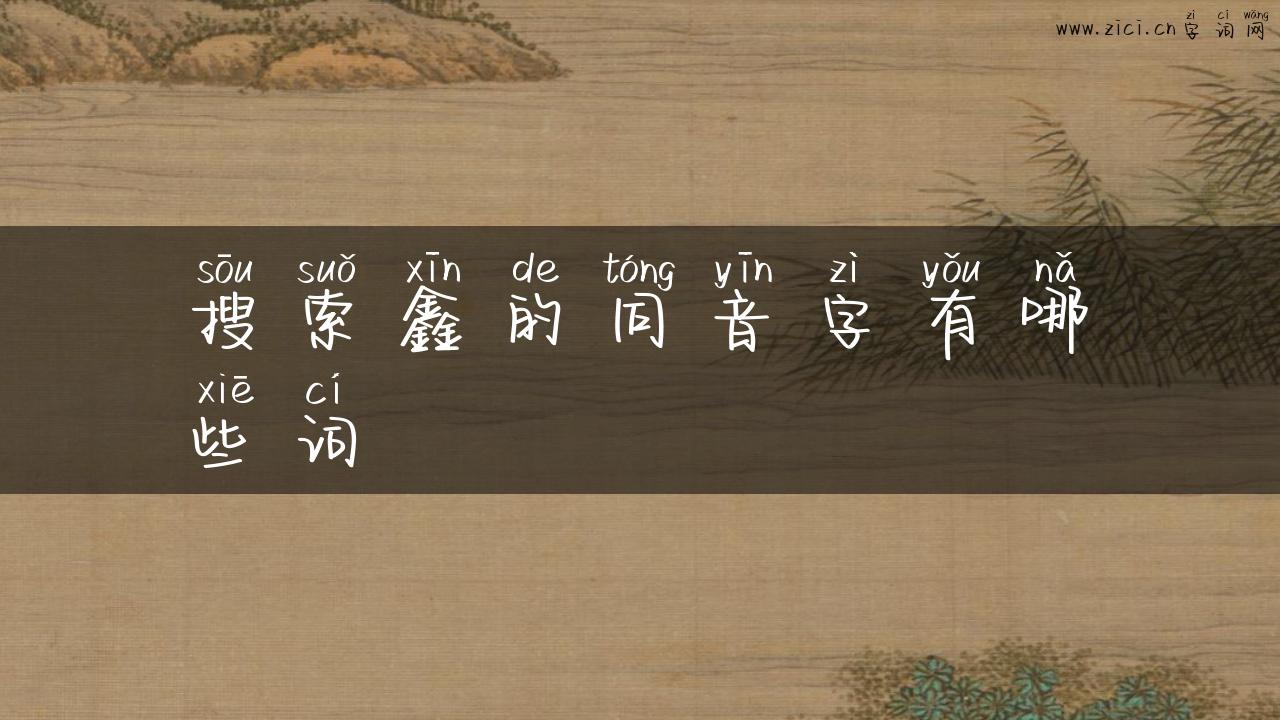 zì cí wǎng
www.zici.cn 字 词 网
sōu suǒ xīn de tóng yīn zì yǒu nǎ
搜 索 鑫 的 同 音 字 有 哪
xiē cí
些 词